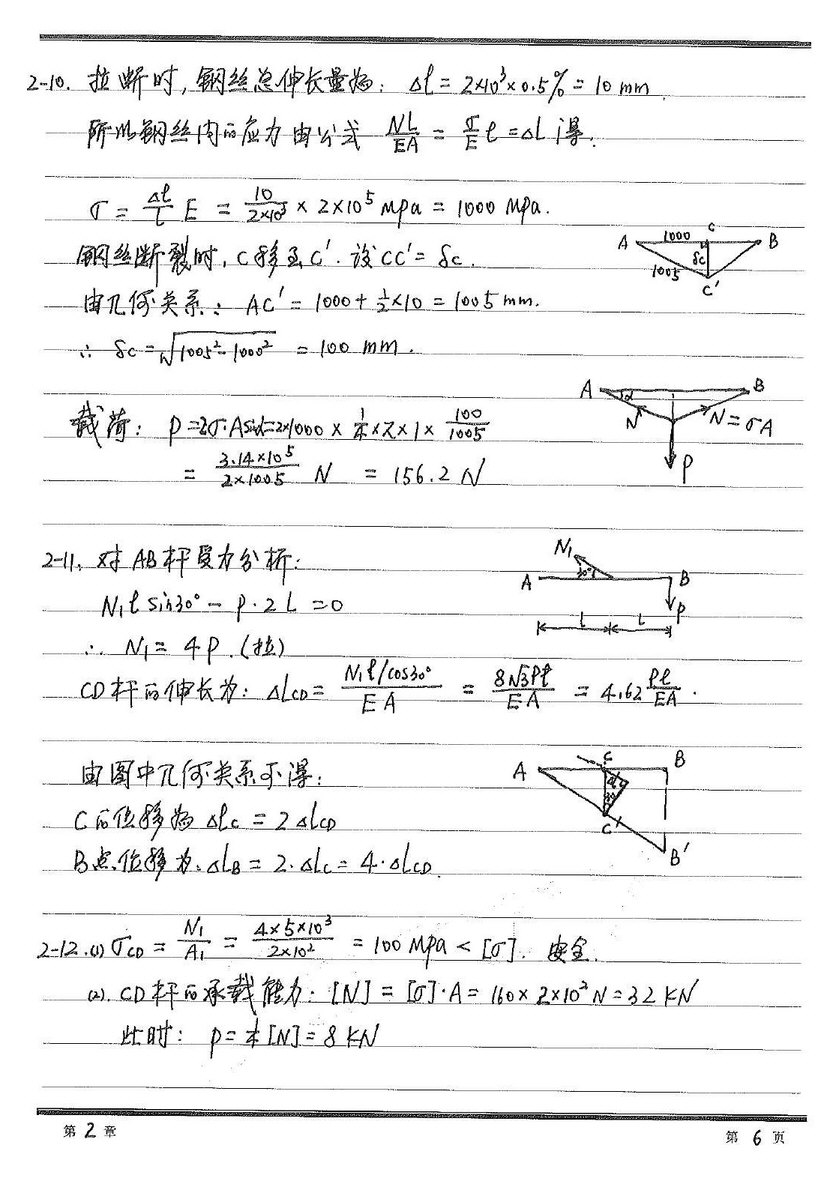 2-10. 拉断时，钢丝总伸长量为： Δl = 2×10³×0.5% = 10 mm.
所以钢丝内的应力由公式 NL/EA = σ/E l = ΔL 得.
σ = Δl/l E = 10/2×10³ × 2×10⁵ MPa = 1000 MPa.
钢丝断裂时, C移至C'. 设CC' = δc.
A 1000 C B
δc
1005
C'
由几何关系： AC' = 1000 + ½×10 = 1005 mm.
∴ δc = √1005²-1000² = 100 mm.
A α B
N N = σA
P
载荷： P = 2σ·Asinα = 2×1000 × ¼×π×1× 100/1005
= 3.14×10⁵/2×1005 N = 156.2 N
2-11. 对AB杆受力分析：
N₁
A 30° B
P
l L
N₁l sin30° - P·2L = 0
∴ N₁ = 4P.(拉)
CD杆的伸长为： ΔLCD = N₁l/cos30°/EA = 8√3Pl/EA = 4.62 Pl/EA.
由图中几何关系可得：
A C B
C'
B'
C的位移为 Δlc = 2ΔLCD
B点位移为: ΔLB = 2·ΔLc = 4·ΔLCD.
2-12.(1) σCD = N₁/A₁ = 4×5×10³/2×10² = 100 MPa < [σ]. 安全.
(2). CD杆的承载能力：[N] = [σ]·A = 160×2×10² N = 32 KN
此时： P = ¼[N] = 8 KN
第 2 章
第 6 页